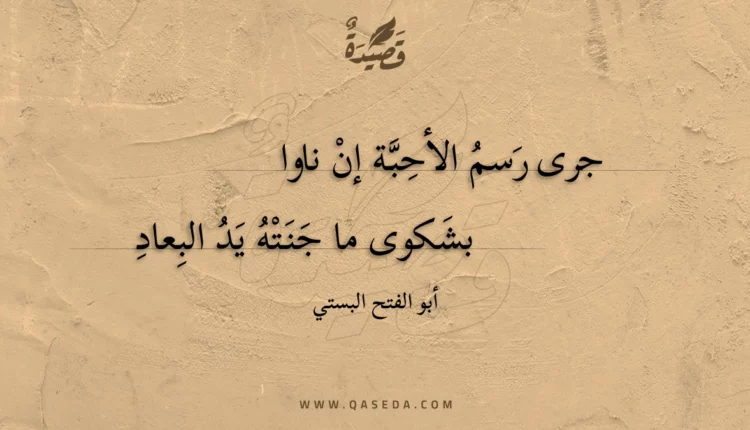 قَصِيْدَةٌ
جرى رَسمُ الأحِبَّة إنْ ناوا
بشَكوى ما جَنَتْهُ يَدُ البِعادِ
أبو الفتح البستي
WWW.QASEDA.COM